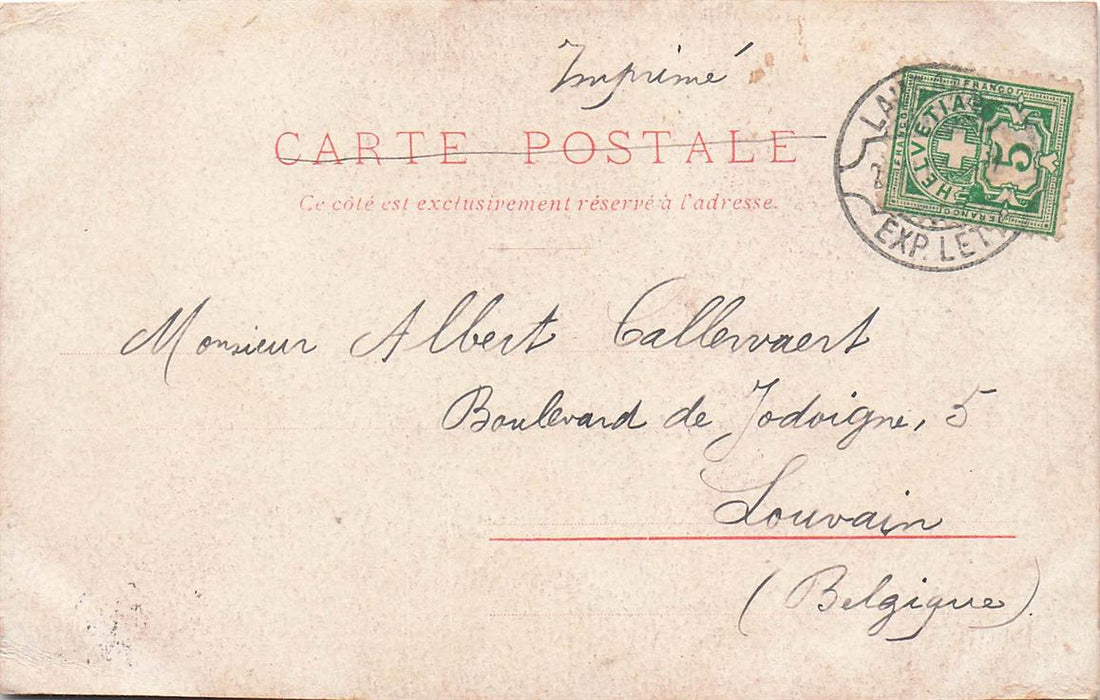 Imprimé
CARTE POSTALE
Ce côté est exclusivement réservé à l'adresse.
FRANCO
FRANCO
HELVETIA
5
FRANCO
EXP. LET
Monsieur Albert Callewaert
Boulevard de Jodoigne, 5
Louvain
(Belgique).